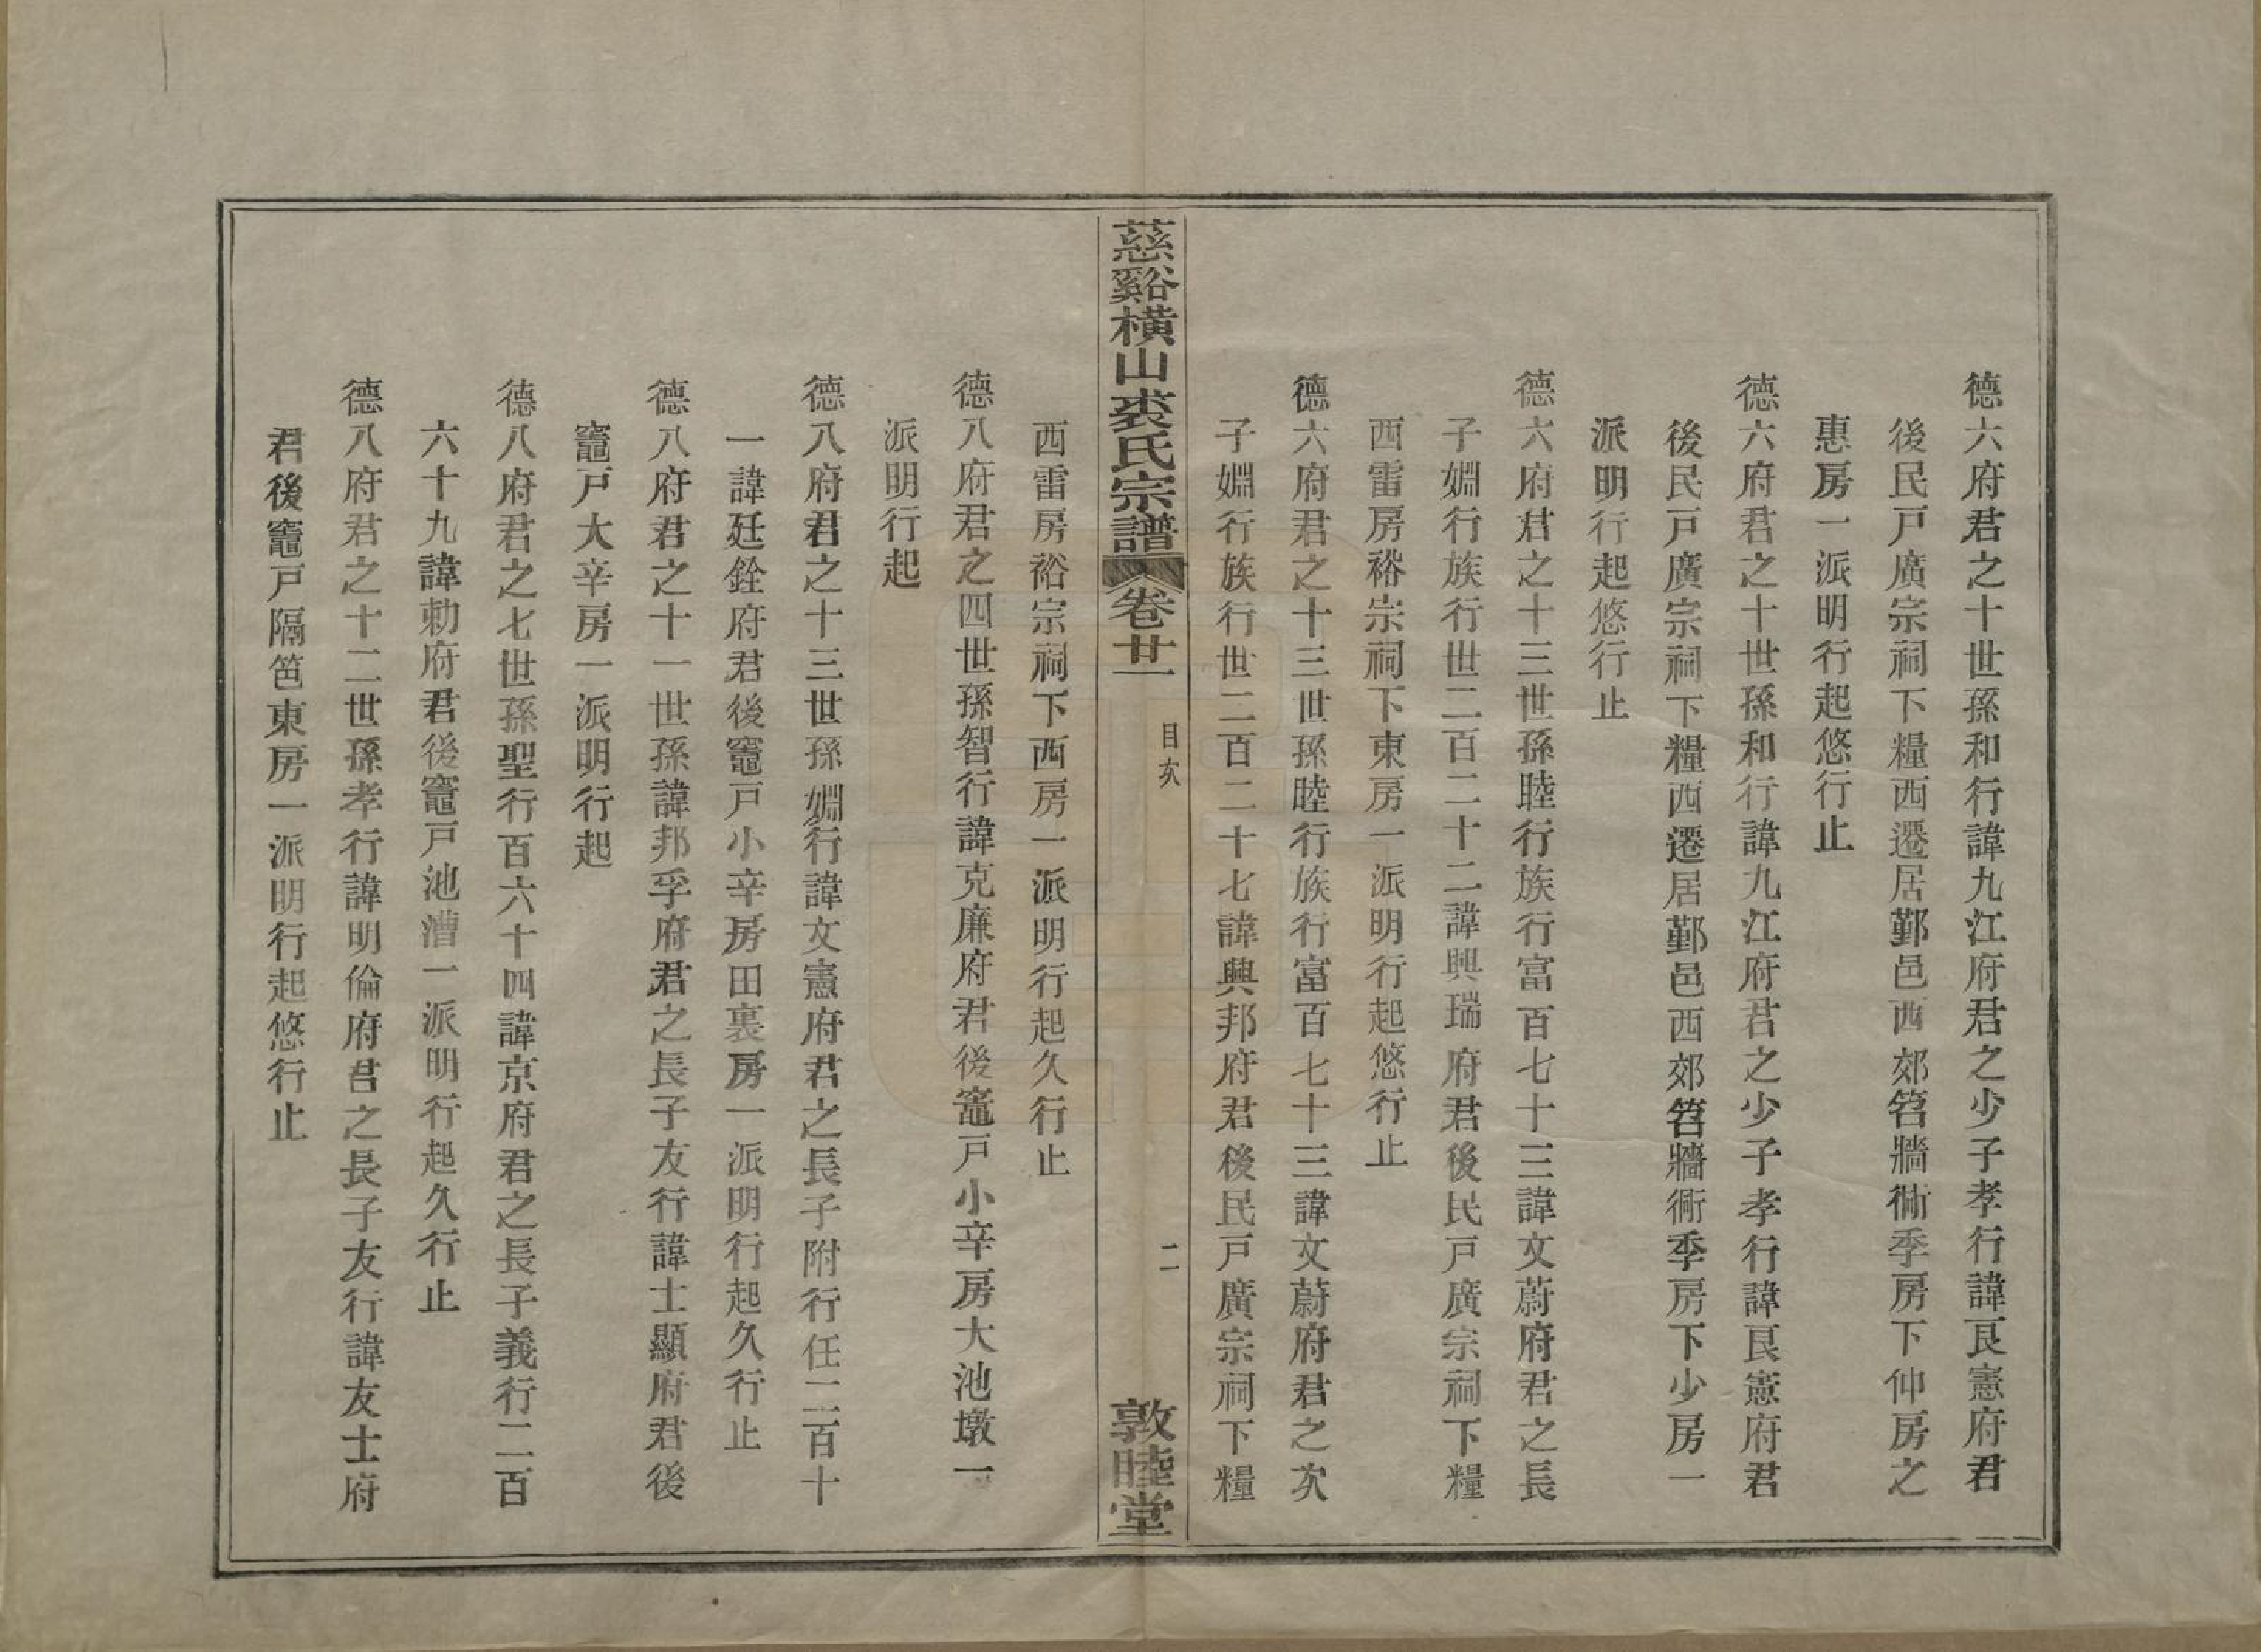 德六府君之十世孫和行諱九江府君之少子孝行諱艮憲府君
後民戶廣宗祠下糧西遷居鄞邑西郊笤牆衕季房下仲房之
惠房一派明行起悠行止
德六府君之十世孫和行諱九江府君之少子孝行諱艮憲府君
後民戶廣宗祠下糧西遷居鄞邑西郊笤牆衕季房下少房一
派明行起悠行止
德六府君之十三世孫睦行族行富百七十三諱文蔚府君之長
子婣行族行世二百二十二諱興瑞府君後民戶廣宗祠下糧
西雷房裕宗祠下東房一派明行起悠行止
德六府君之十三世孫睦行族行富百七十三諱文蔚府君之次
子婣行族行世二百二十七諱興邦府君後民戶廣宗祠下糧
慈谿橫山裘氏宗譜 卷廿一 目次 二 敦睦堂
西雷房裕宗祠下西房一派明行起久行止
德八府君之四世孫智行諱克廉府君後竈戶小辛房大池墩一
派明行起
德八府君之十三世孫婣行諱文憲府君之長子附行任二百十
一諱廷銓府君後竈戶小辛房田裏房一派明行起久行止
德八府君之十一世孫諱邦孚府君之長子友行諱士顯府君後
竈戶大辛房一派明行起
德八府君之七世孫聖行百六十四諱京府君之長子義行二百
六十九諱勅府君後竈戶池漕一派明行起久行止
德八府君之十二世孫孝行諱明倫府君之長子友行諱友士府
君後竈戶隔笆東房一派明行起悠行止